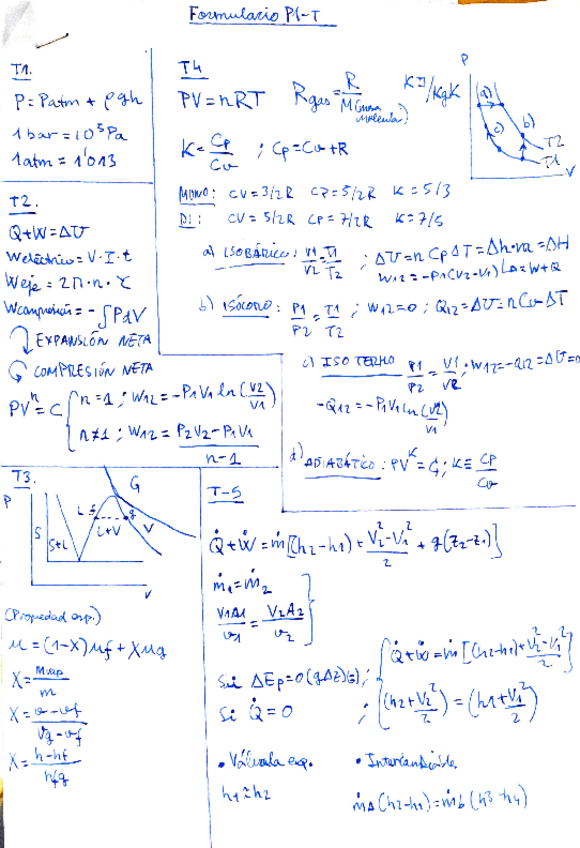 Formulario P1-T
T1.
P = Patm + ρgh
1 bar = 10⁵ Pa
1 atm = 1'013
T2.
Q+W=ΔU
Weléctrico = V·I·t
Weje = 2π·n·τ
Wcompresión = -∫PdV
EXPANSIÓN NETA
COMPRESIÓN NETA
PVⁿ = C { n=1 ; W12 = -P1V1 ln(V2/V1)
n≠1 ; W12 = (P2V2 - P1V1)/(n-1)
T3.
P
G
S
S+L
L
f
g
L+V
V
V
(Propiedad esp.)
u = (1-x)uf + xug
X = mvap/m
X = (v-vf)/(vg-vf)
X = (h-hf)/hfg
T4
PV = nRT
Rgas = R/M (masa molecular)
KJ/KgK
K = Cp/Cv ; Cp = Cv + R
MONO: CV = 3/2R CP = 5/2R K = 5/3
DI: CV = 5/2R CP = 7/2R K = 7/5
P
a)
b)
c)
T2
T1
V
a) ISOBÁRICO: V1/V2 = T1/T2 ; ΔU = n CpΔT = Δh·m = ΔH
W12 = -P1(V2-V1) = W+Q
b) ISÓCORO: P1/P2 = T1/T2 ; W12=0 ; Q12=ΔU=nCv·ΔT
c) ISOTERMO P1/P2 = V1/V2 ; W12=-Q12=ΔU=0
-Q12 = -P1V1 ln(V2/V1)
d) ADIABÁTICO: PVᴷ = C ; K ≡ Cp/Cv
T-5
Q̇+Ẇ = ṁ[(h2-h1) + (V2²-V1²)/2 + g(z2-z1)]
ṁ1 = ṁ2
V1A1/v1 = V2A2/v2
Si ΔEp=0 (gΔz) ; { Q̇+Ẇ = ṁ[(h2-h1) + (V2²-V1²)/2]
Si Q̇ = 0 ; (h2+V2²/2) = (h1+V1²/2)
• Válvula exp.
h1 ≃ h2
• Intercambiador
ṁA (h2-h1) = ṁb (h3-h4)